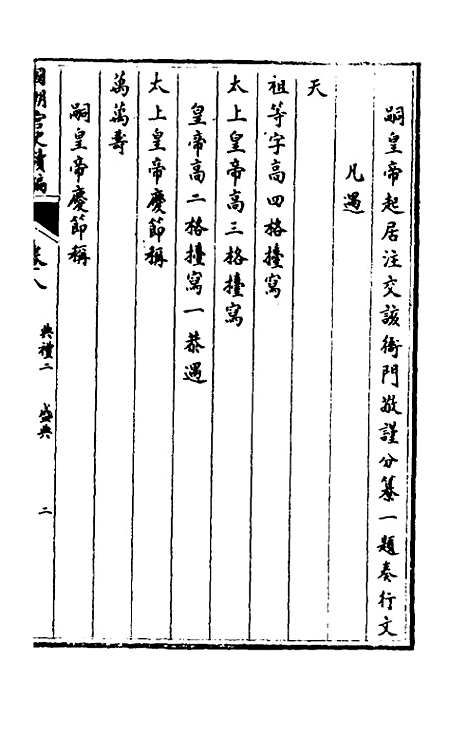 嗣皇帝起居注交該衙門敬謹分纂一題奏行文
凡遇
天
祖等字高四格擡寫
太上皇帝高三格擡寫
皇帝高二格擡寫一恭遇
太上皇帝慶節稱
萬萬壽
嗣皇帝慶節稱
國朝宮史續編
卷八
典禮二
盛典
二